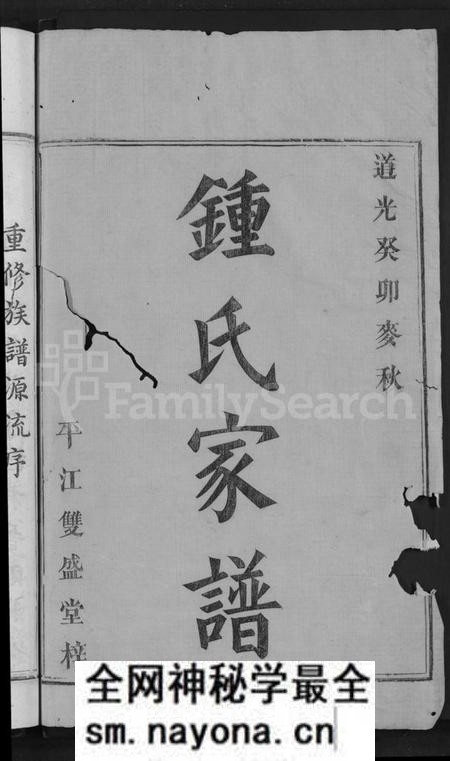 道光癸卯麥秋
鍾氏家譜
平江雙盛堂梓
重修族譜源流序
FamilySearch
全网神秘学最全
sm.nayona.cn